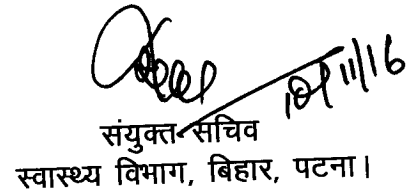 10/11/16
संयुक्त सचिव
स्वास्थ्य विभाग, बिहार, पटना।